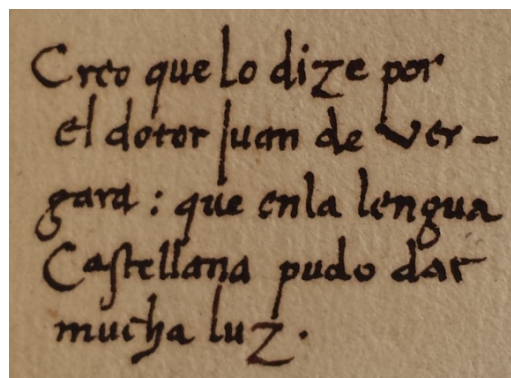 Creo que lo dize por
el dotor Juan de Ver-
gara: que enla lengua
Castellana pudo dar
mucha luz.